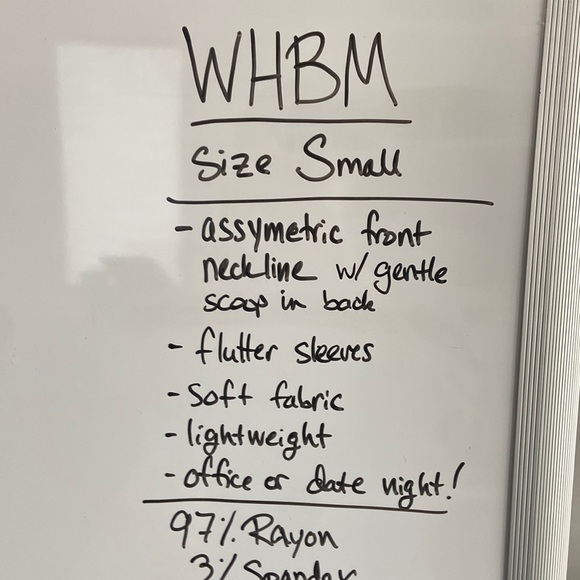 WHBM
Size Small
- assymetric front
neckline w/ gentle
scoop in back
- flutter sleeves
- Soft fabric
- lightweight
- office or date night!
97% Rayon
3% Spandex